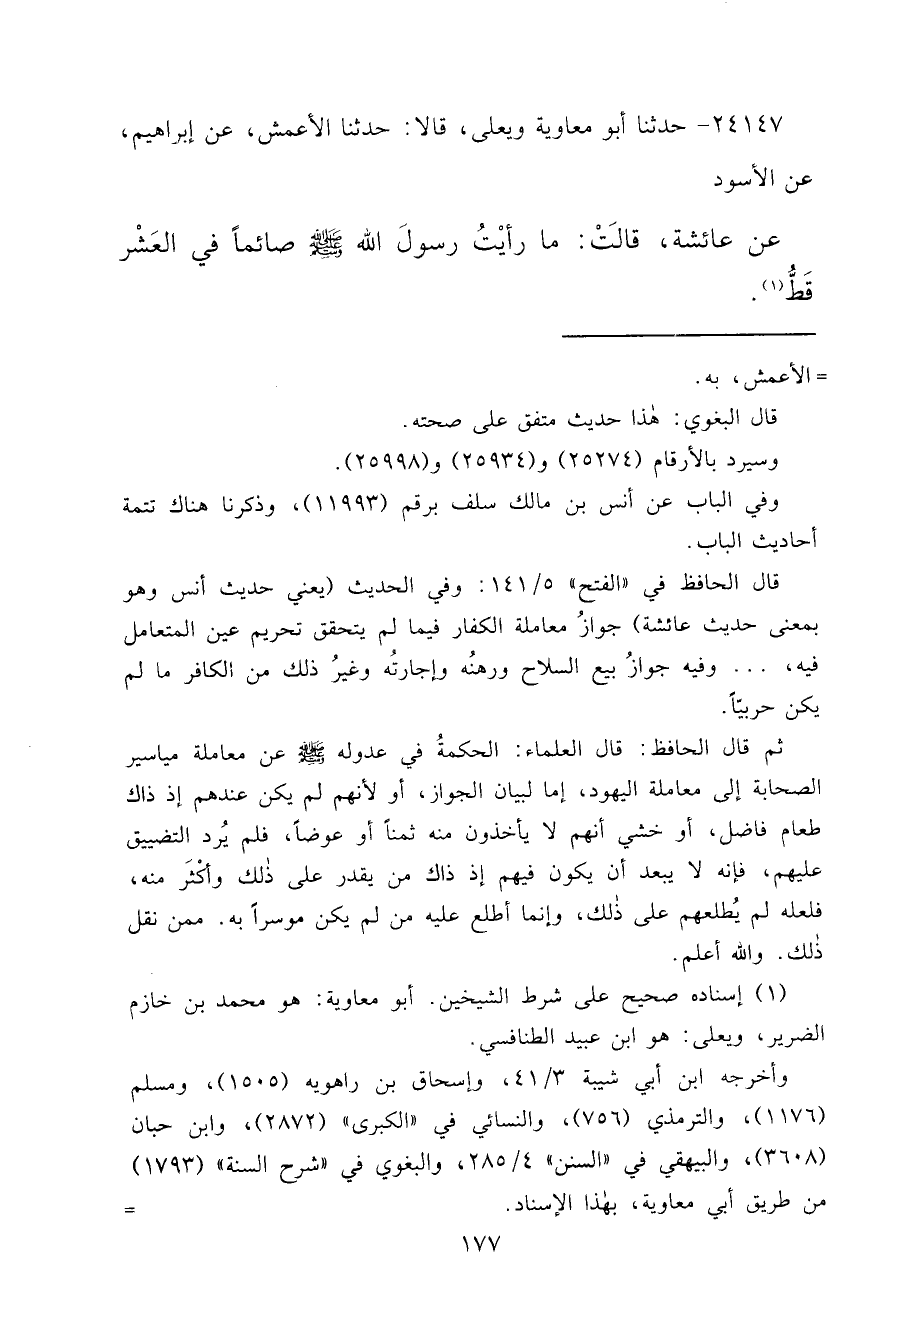 ٢٤١٤٧- حدثنا أبو معاوية ويعلى، قالا: حدثنا الأعمش، عن إبراهيم،
عن الأسود
عن عائشة، قالَتْ: ما رأيْتُ رسولَ الله ﷺ صائماً في العَشْر
قَطُّ(١).
= الأعمش، به.
قال البغوي: هٰذا حديث متفق على صحته.
وسيرد بالأرقام (٢٥٢٧٤) و(٢٥٩٣٤) و(٢٥٩٩٨).
وفي الباب عن أنس بن مالك سلف برقم (١١٩٩٣)، وذكرنا هناك تتمة
أحاديث الباب.
قال الحافظ في «الفتح» ١٤١/٥: وفي الحديث (يعني حديث أنس وهو
بمعنى حديث عائشة) جوازُ معاملة الكفار فيما لم يتحقق تحريم عين المتعامل
فيه، ... وفيه جوازُ بيع السلاح ورهنُه وإجارتُه وغيرُ ذلك من الكافر ما لم
يكن حربيّاً.
ثم قال الحافظ: قال العلماء: الحكمةُ في عدوله ﷺ عن معاملة مياسير
الصحابة إلى معاملة اليهود، إما لبيان الجواز، أو لأنهم لم يكن عندهم إذ ذاك
طعام فاضل، أو خشي أنهم لا يأخذون منه ثمناً أو عوضاً، فلم يُرد التضييق
عليهم، فإنه لا يبعد أن يكون فيهم إذ ذاك من يقدر على ذٰلك وأكْثَر منه،
فلعله لم يُطلعهم على ذٰلك، وإنما أطلع عليه من لم يكن موسراً به. ممن نقل
ذٰلك. والله أعلم.
(١) إسناده صحيح على شرط الشيخين. أبو معاوية: هو محمد بن خازم
الضرير، ويعلى: هو ابن عبيد الطنافسي.
وأخرجه ابن أبي شيبة ٤١/٣، وإسحاق بن راهويه (١٥٠٥)، ومسلم
(١١٧٦)، والترمذي (٧٥٦)، والنسائي في «الكبرى» (٢٨٧٢)، وابن حبان
(٣٦٠٨)، والبيهقي في «السنن» ٢٨٥/٤، والبغوي في «شرح السنة» (١٧٩٣)
من طريق أبي معاوية، بهٰذا الإسناد. =
١٧٧